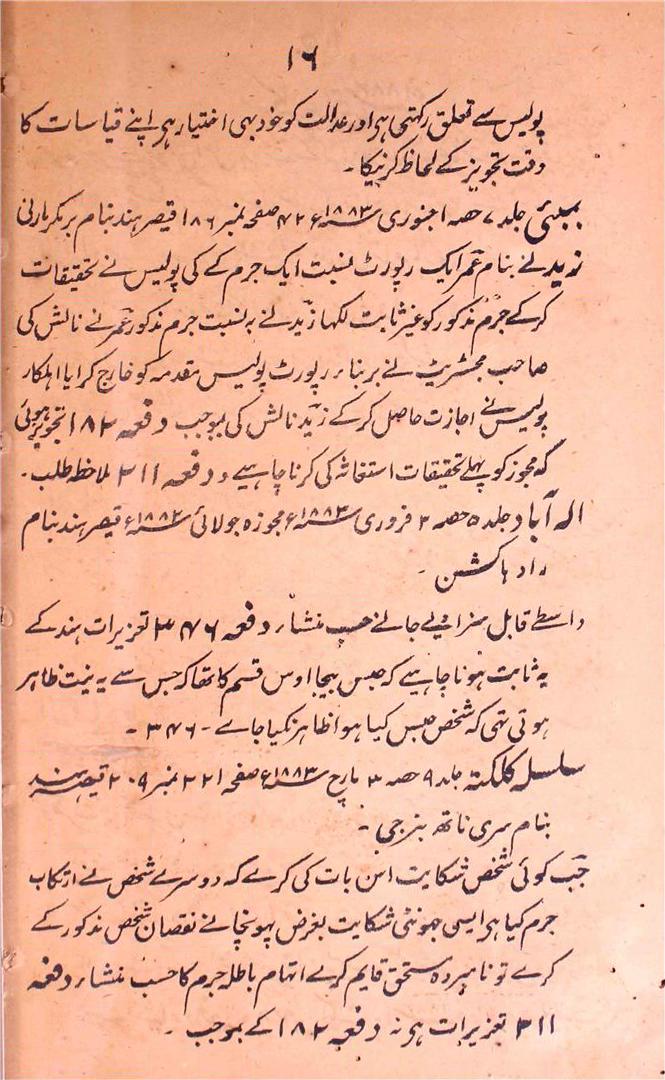 ۱۶
پولیس سے تعلق رکہتی ہر اور عدالت کو خود بہی اختیار ہر اپنے قیاسات کا
وقت تجویز کے لحاظ کرنیکا ۔
بمبئی جلد ۷ حصہ ۱ جنوری ۱۸۸۳ء ۴۲۶ صفحہ نمبر ۱۸۶ قیصر ہند بنام
زید نے بنام عمر ایک رپورٹ بنسبت ایک جرم کے کی پولیس نے تحقیقات
کرکے جرم مذکور کو غیر ثابت لکہا زید نے بہ نسبت جرم مذکور عمر نے نالش کی
صاحب مجسٹریٹ نے بر بناء رپورٹ پولیس مقدمہ کو خارج کرایا اہلکار
پولیس نے اجازت حاصل کرکے زید نالش کی بموجب دفعہ ۱۸۲ تجویز ہوئی
کہ مجوز کو پہلے تحقیقات استغاثہ کی کرنا چاہیے و دفعہ ۲۱۱ ملاحظہ طلب ۔
الہ آباد جلد ۵ حصہ ۲ فروری ۱۸۸۳ء مجوزہ جولائی ۱۸۸۲ء قیصر ہند بنام
رادہا کشن ۔
واسطے قابل سزا دیے جانے حسب منشاء دفعہ ۳۴۶ تعزیرات ہند کے
یہ ثابت ہونا چاہیے کہ حبس بیجا اوس قسم کا تھا کہ جس سے یہ نیت ظاہر
ہوتی تہی کہ شخص حبس کیا ہوا ظاہر نکیا جاے ۔ ۳۴۶ ۔
سلسلہ کلکتہ جلد ۹ حصہ ۳ مارچ ۱۸۸۳ء صفحہ ۲۲۱ نمبر ۲۰۹ قیصر ہند
بنام سری ناتھ بنرجی ۔
جب کوئی شخص شکایت اس بات کی کرے کہ دوسرے شخص نے ارتکاب
جرم کیا ہر ایسی جہونٹی شکایت بغرض پہونچانے نقصان شخص مذکور کے
کرے تو نامبردہ مستحق قایم کرنے اتہام باطلہ جرم کا حسب منشاء دفعہ
۲۱۱ تعزیرات ہو نہ دفعہ ۱۸۲ کے بموجب ۔